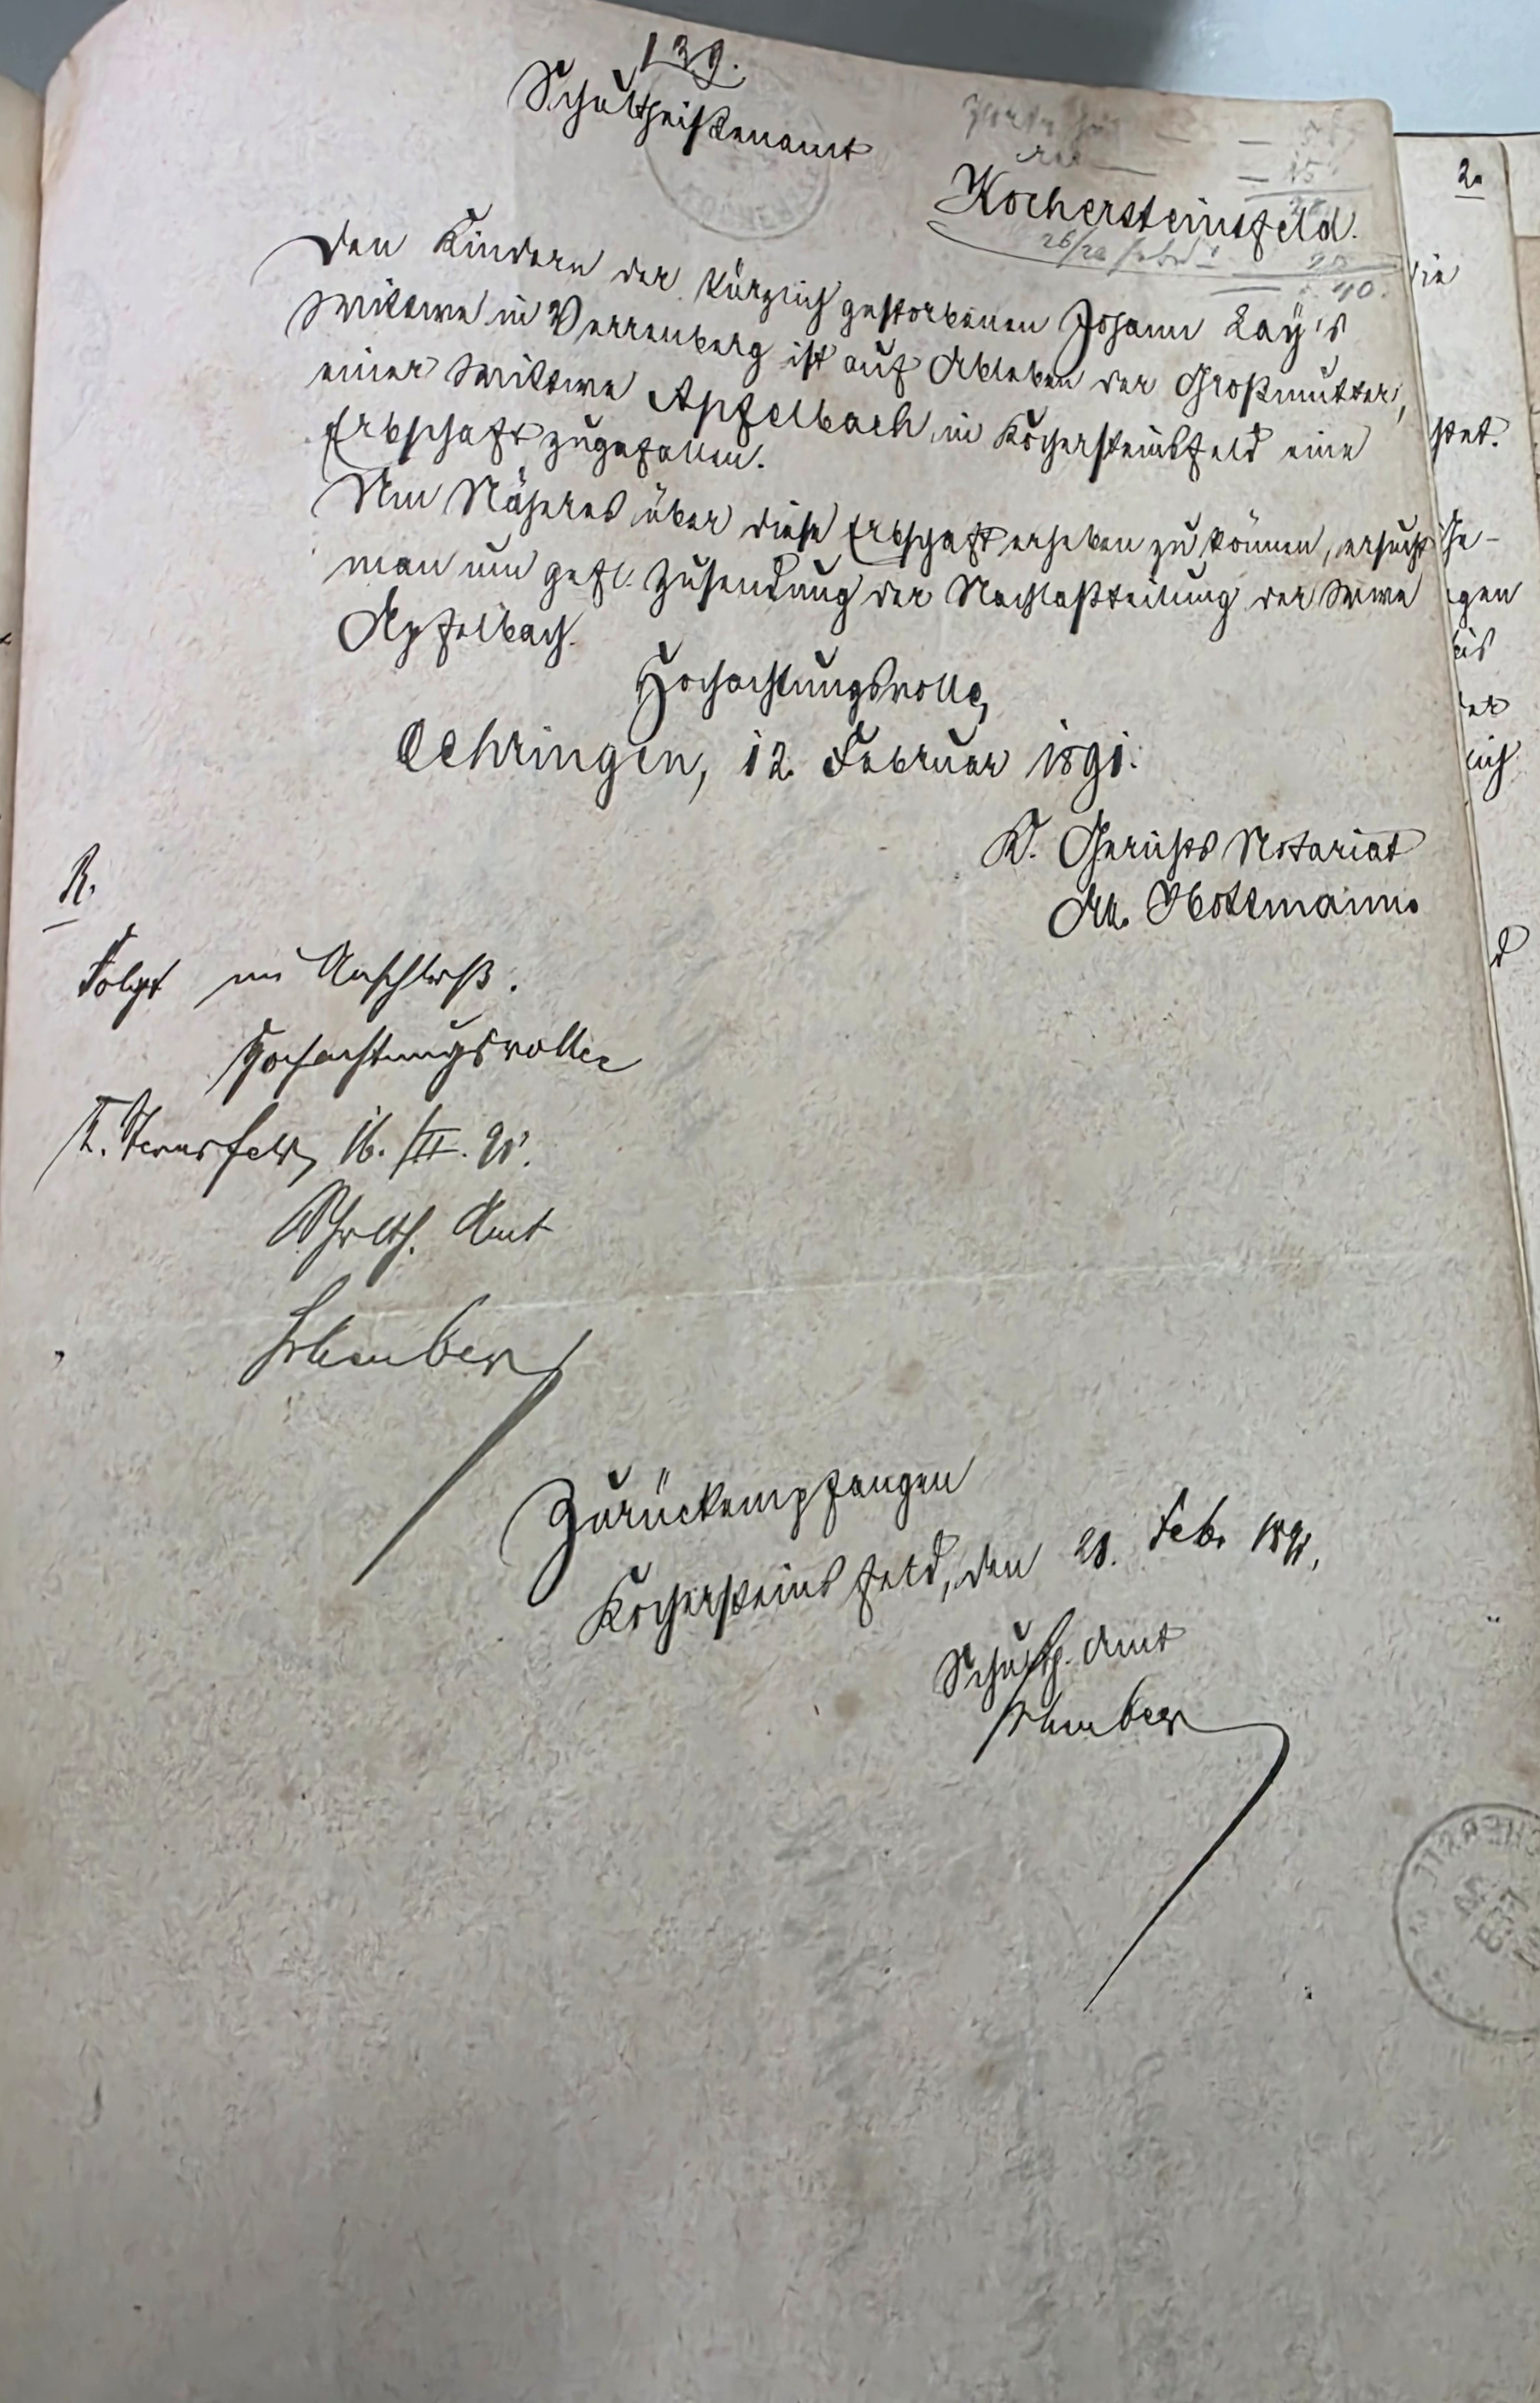 139.
Schultheißenamt
Kochersteinsfeld.
Den Kindern der kürzlich gestorbenen Johann Lay's
Wittwe in Verrenberg ist auf Ableben der Großmutter,
einer Wittwe Apfelbach in Kochersteinsfeld eine
Erbschaft zugefallen.
Um Näheres über diese Erbschaft erheben zu können, ersucht
man um gefl. Zusendung der Nachlaßteilung der Wwe
Apfelbach.
Hochachtungsvollst
Oehringen, 12. Februar 1891.
K. Gerichts Notariat
Hottmann.
R.
Folgt im Anschluß.
Hochachtungsvollst
K. Steinsfeld, 16. /II. 91.
Schulth. Amt
Zurückempfangen
Kochersteinsfeld, den 21. Feb. 1891.
Schulth. Amt
2.